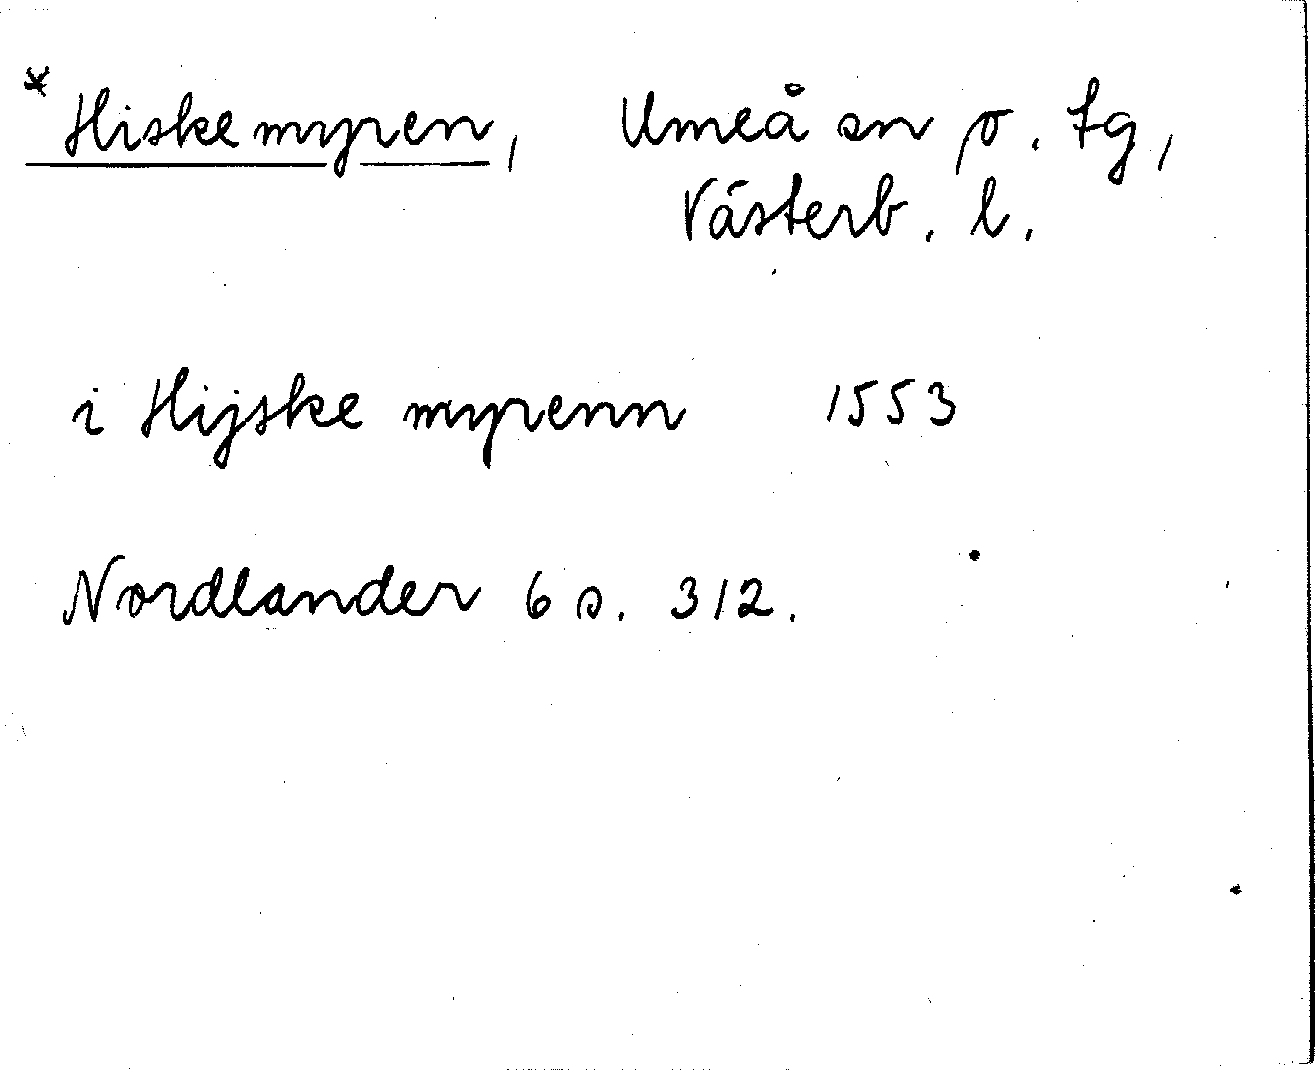 *Hiskemyren, Umeå sn o. tg,
Västerb. l.
i Hijske myrenn 1553
Nordlander 6 s. 312.